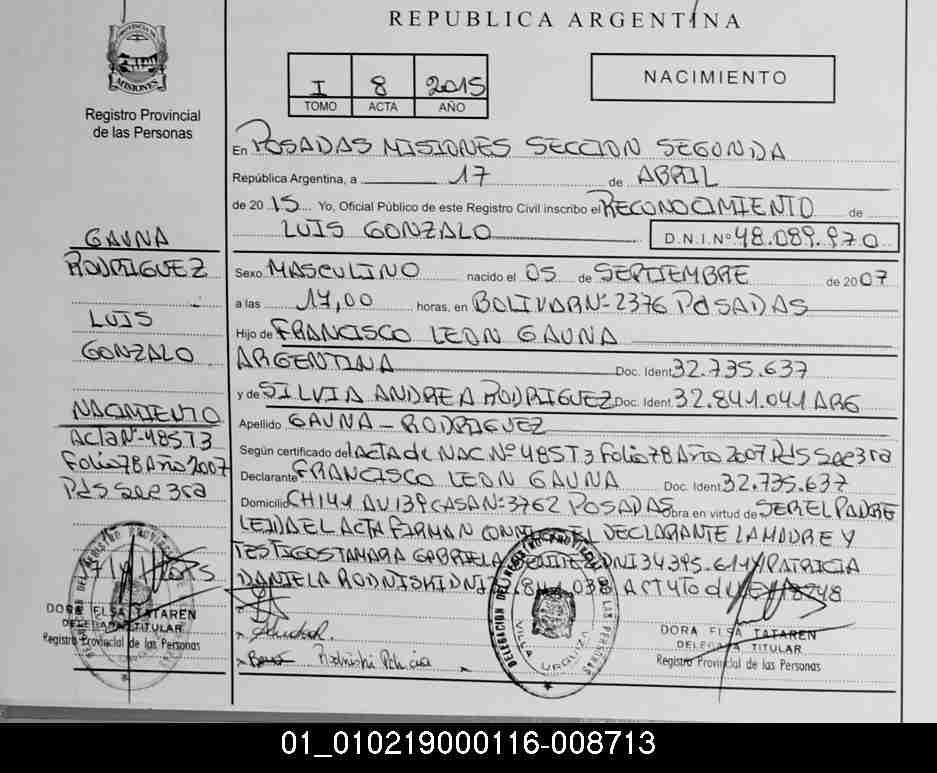 REPUBLICA ARGENTINA
PROVINCIA DE
MISIONES
Registro Provincial
de las Personas
I 8 2015
TOMO ACTA AÑO
NACIMIENTO
En POSADAS MISIONES SECCION SEGUNDA
República Argentina, a 17 de ABRIL
de 2015 Yo, Oficial Público de este Registro Civil inscribo el RECONOCIMIENTO de
LUIS GONZALO D.N.I.Nº 48.089.970
Sexo MASCULINO nacido el 05 de SEPTIEMBRE de 2007
a las 17,00 horas, en BOLIVAR Nº-2376 POSADAS
Hijo de FRANCISCO LEON GAUNA
ARGENTINA Doc. Ident 32.735.637
y de SILVIA ANDREA RODRIGUEZ Doc. Ident. 32.841.041 ARG
Apellido GAUNA - RODRIGUEZ
Según certificado del ACTA de NAC Nº 485 T3 Folio 78 Año 2007 Pds Sec 3ra
Declarante FRANCISCO LEON GAUNA Doc. Ident 32.735.637
Domicilio CH 141 AV 139 CASA Nº-3762 POSADAS obra en virtud de SER EL PADRE
LEIDA EL ACTA FIRMAN EL DECLARANTE LA MADRE Y
TESTIGOS TAMARA GABRIELA DNI 34.395.611 Y PATRICIA
DANIELA RODNISHI DNI
GAUNA
RODRIGUEZ
LUIS
GONZALO
NACIMIENTO
Acta Nº-485 T3
Folio 78 Año 2007
Pds Sec 3ra
DORA ELSA TATAREN
DELEGADA TITULAR
Registro Provincial de las Personas
Rodnishi Patricia
DELEGACION DEL REGISTRO PROVINCIAL DE LAS PERSONAS
VILLA URQUIZA
DORA ELSA TATAREN
DELEGADA TITULAR
Registro Provincial de las Personas
01_010219000116-008713